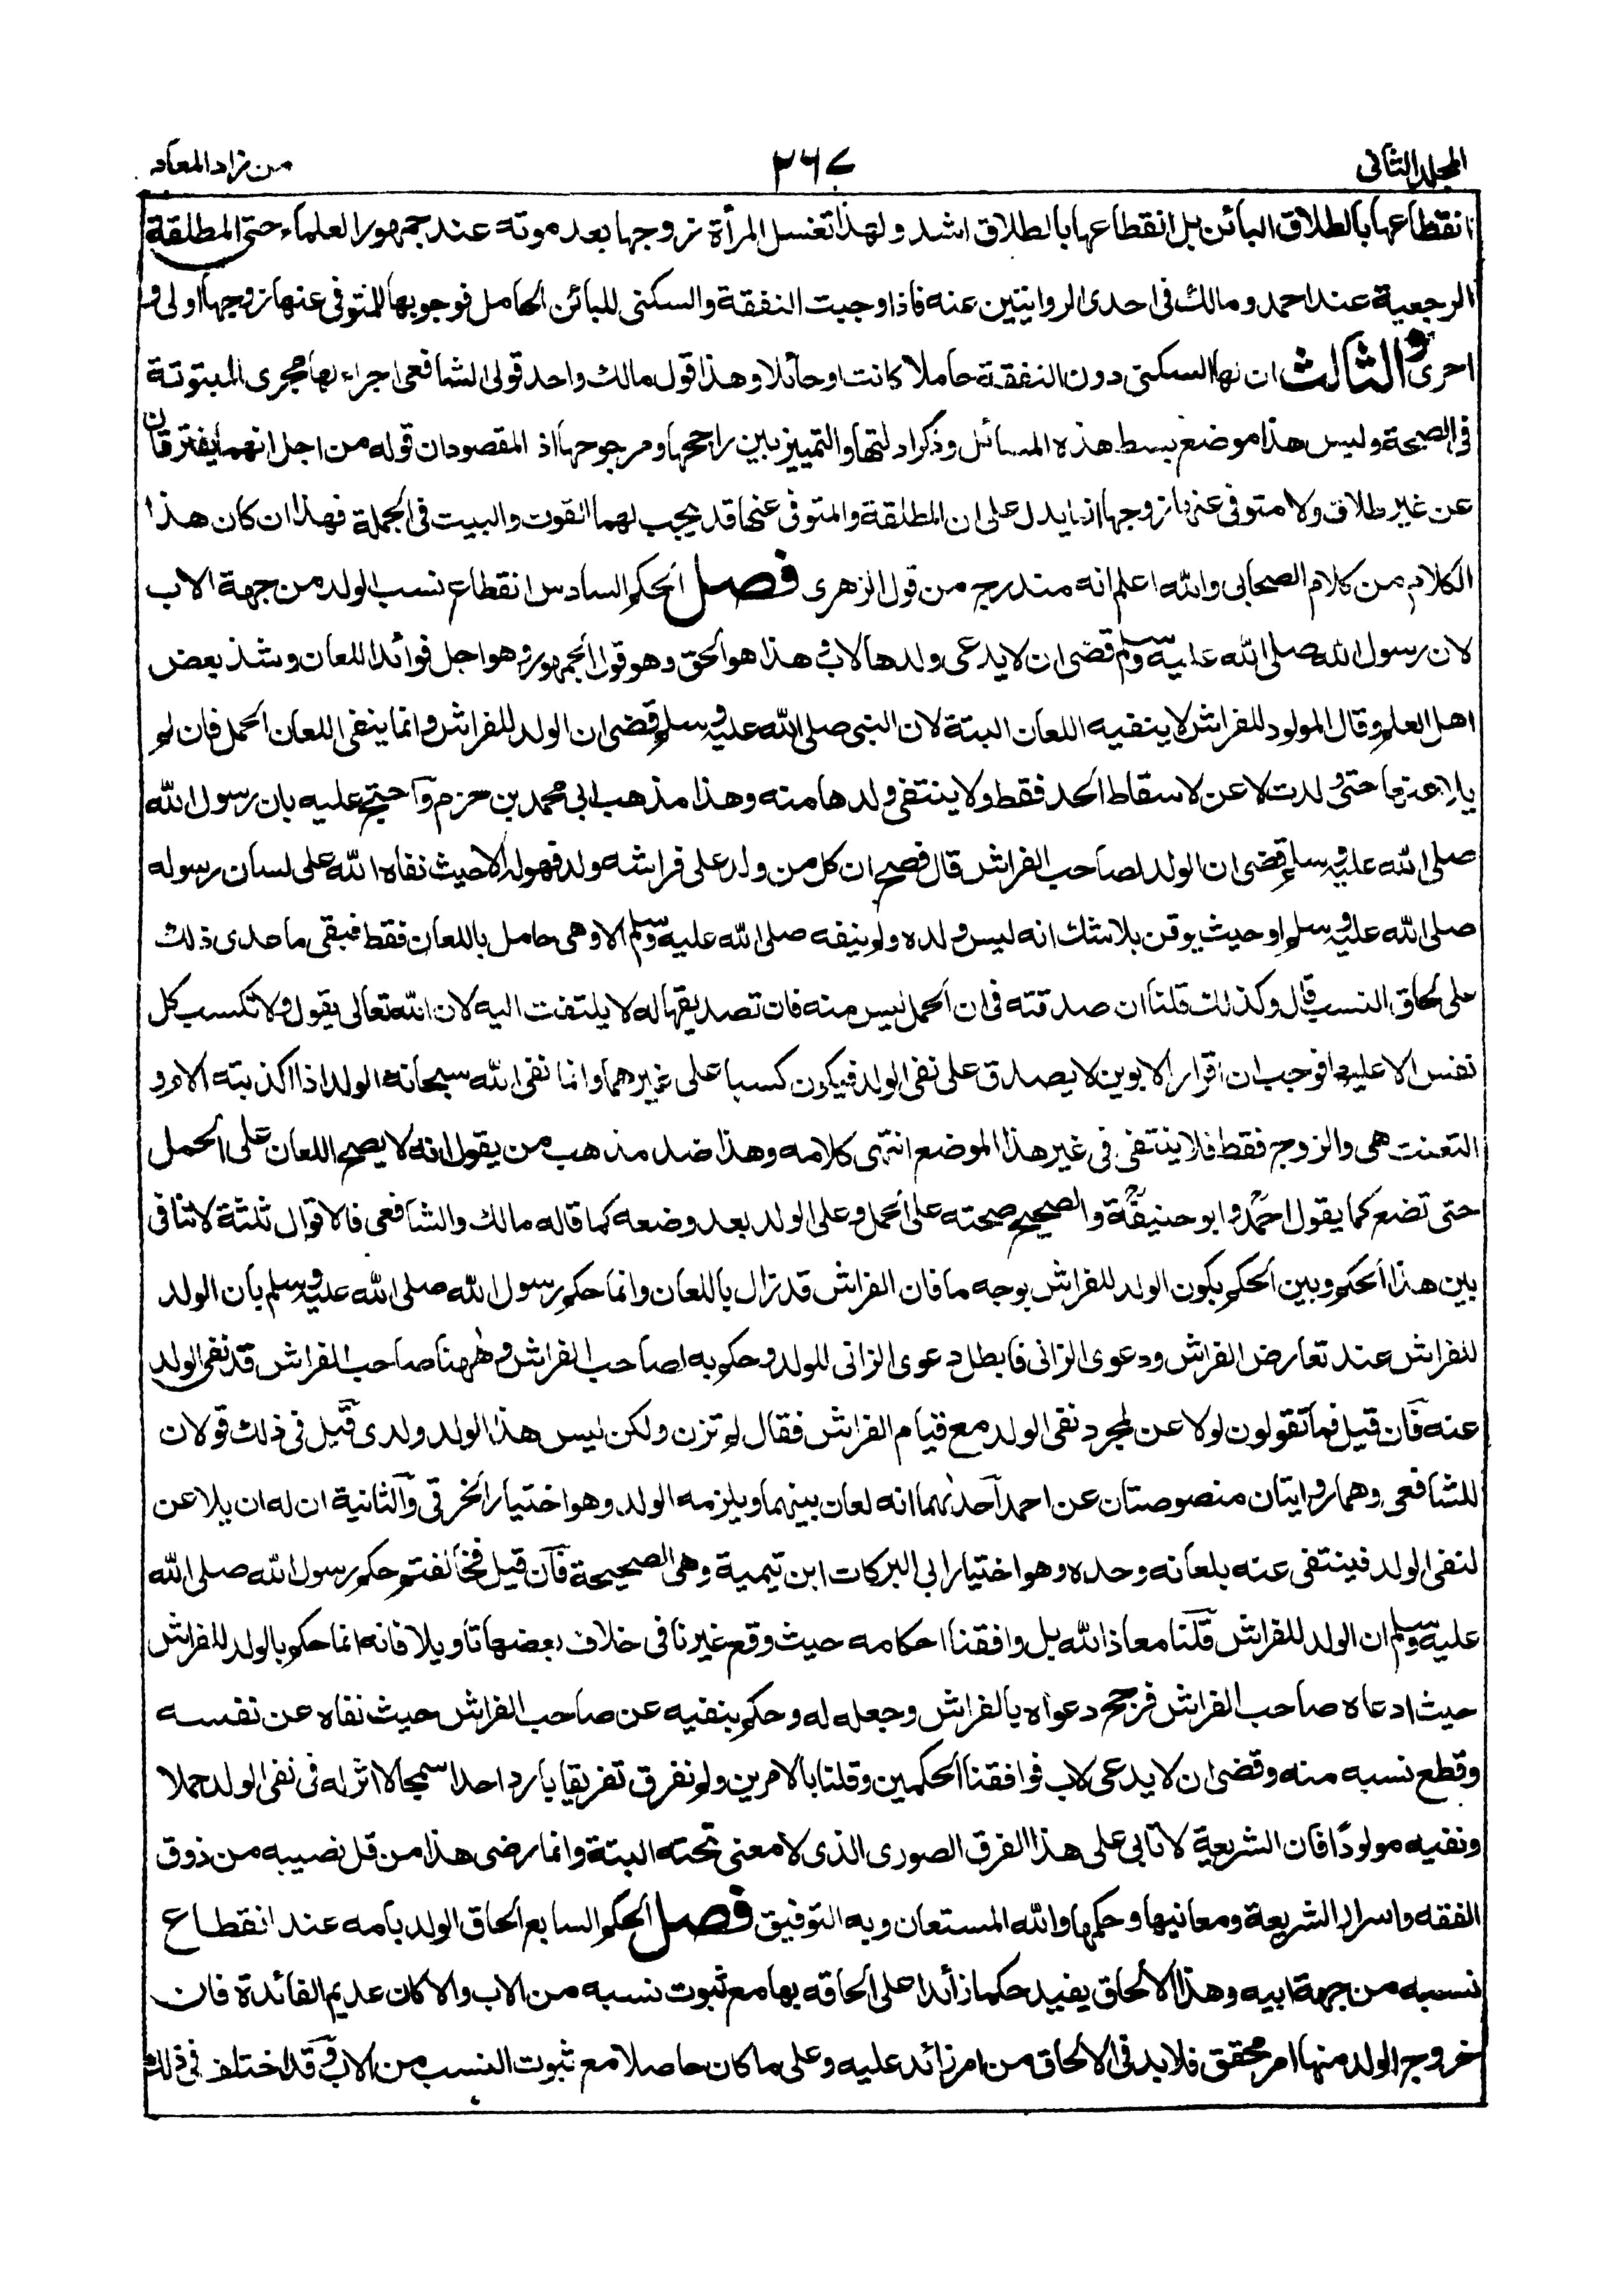 المجلد الثانی
٣٦٧
من زاد المعاد
انقطاعها بالطلاق البائن بل انقطاعها بالطلاق اشد ولهذا تغسل المرأة زوجها بعد موته عند جمهور العلماء حتی المطلقة
الرجعیة عند احمد ومالك فی احدی الروایتین عنه فاذا وجبت النفقة والسکنی للبائن الحامل فوجوبها للمتوفی عنها زوجها اولی و
احری والثالث ان لها السکنی دون النفقة حاملا کانت او حائلا وهذا قول مالك واحد قولی الشافعی اجراء لها مجری المبتوتة
فی الصحة ولیس هذا موضع بسط هذه المسائل وذکر ادلتها والتمییز بین راجحها ومرجوحها اذ المقصود ان قوله من اجل انهما یفترقان
عن غیر طلاق ولا متوفی عنها زوجها انما یدل علی ان المطلقة والمتوفی عنها قد یجب لهما القوت والبیت فی الجملة فهذا ان کان هذا
الکلام من کلام الصحابی والله اعلم انه مندرج من قول الزهری فصل الحکم السادس انقطاع نسب الولد من جهة الاب
لان رسول الله صلی الله علیه وسلم قضی ان لا یدعی ولدها لاب وهذا هو الحق وهو قول الجمهور وهو اجل فوائد اللعان وشذ بعض
اهل العلم وقال المولود للفراش لا ینفیه اللعان البتة لان النبی صلی الله علیه وسلم قضی ان الولد للفراش وانما ینفی اللعان الحمل فان لم
یلاعنها حتی ولدت لاعن لاسقاط الحد فقط ولا ینتفی ولدها منه وهذا مذهب ابی محمد بن حزم واحتج علیه بان رسول الله
صلی الله علیه وسلم قضی ان الولد لصاحب الفراش قال فصح ان کل من ولد علی فراشه ولد فهو له الا حیث نفاه الله علی لسان رسوله
صلی الله علیه وسلم او حیث یوقن بلا شك انه لیس ولده ولم ینفه صلی الله علیه وسلم الا وهی حامل باللعان فقط فبقی ما عدی ذلك
علی لحاق النسب قال وکذلك قلنا ان صدقته فی ان الحمل لیس منه فان تصدیقها له لا یلتفت الیه لان الله تعالی یقول ولا تکسب کل
نفس الا علیها فوجب ان اقرار الابوین لا یصدق علی نفی الولد فیکون کسبا علی غیرهما وانما نفی الله سبحانه الولد اذا اکذبته الام و
التعنت هی والزوج فقط فلا ینتفی فی غیر هذا الموضع انتهی کلامه وهذا ضد مذهب من یقول انه لا یصح اللعان علی الحمل
حتی تضع کما یقول احمد وابو حنیفة والصحیح صحته علی الحمل وعلی الولد بعد وضعه کما قاله مالك والشافعی فالاقوال ثلثة لا تنافی
بین هذا الحکم وبین الحکم بکون الولد للفراش بوجه ما فان الفراش قد زال باللعان وانما حکم رسول الله صلی الله علیه وسلم بان الولد
للفراش عند تعارض الفراش ودعوی الزانی فابطل دعوی الزانی للولد وحکم به لصاحب الفراش وههنا صاحب الفراش قد نفی الولد
عنه فان قیل فما تقولون لو لاعن لمجرد نفی الولد مع قیام الفراش فقال لم تزن ولکن لیس هذا الولد ولدی قیل فی ذلك قولان
للشافعی وهما روایتان منصوصتان عن احمد احدٰهما انه لعان بینهما ویلزمه الولد وهو اختیار الخرقی والثانیة ان له ان یلاعن
لنفی الولد فینتفی عنه بلعانه وحده وهو اختیار ابی البرکات ابن تیمیة وهی الصحیحة فان قیل فخالفتم حکم رسول الله صلی الله
علیه وسلم ان الولد للفراش قلنا معاذ الله بل وافقنا احکامه حیث وقع غیرنا فی خلاف بعضها تاویلا فانه انما حکم بالولد للفراش
حیث ادعاه صاحب الفراش فرجح دعواه بالفراش وجعله له وحکم بنفیه عن صاحب الفراش حیث نفاه عن نفسه
وقطع نسبه منه وقضی ان لا یدعی لاب فوافقنا الحکمین وقلنا بالامرین ولم نفرق تفریقا باردا احدا سمجا لا اثر له فی نفی الولد حملا
ونفیه مولودًا فان الشریعة لا تابی علی هذا الفرق الصوری الذی لا معنی تحته البتة وانما رضی هذا من قل نصیبه من ذوق
الفقه واسرار الشریعة ومعانیها وحکمها والله المستعان وبه التوفیق فصل الحکم السابع الحاق الولد بامه عند انقطاع
نسبه من جهة ابیه وهذا الالحاق یفید حکما زائدا علی الحاقه بها مع ثبوت نسبه من الاب والا کان عدیم الفائدة فان
خروج الولد منها امر محقق فلا بد فی الالحاق من امر زائد علیه وعلی ما کان حاصلا مع ثبوت النسب من الاب وقد اختلف فی ذلك